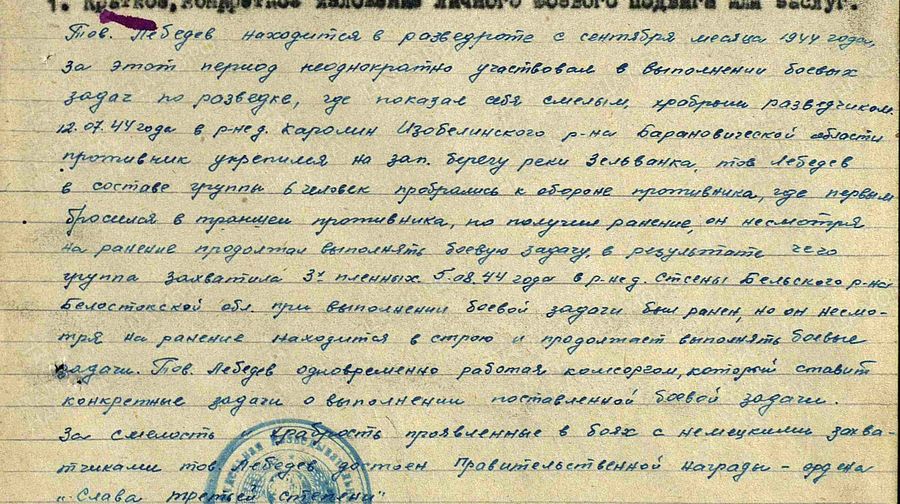 1. Краткое, конкретное изложение личного боевого подвига или заслуг.
Тов. Лебедев находится в разведроте с сентября месяца 1944 года,
за этот период неоднократно участвовал в выполнении боевых
задач по разведке, где показал себя смелым, храбрым разведчиком.
12.07.44 года в р-не д. Каролин Изобелинского р-на Барановической области
противник укрепился на зап. берегу реки Зельванка, тов Лебедев
в составе группы 6 человек пробрались к обороне противника, где первым
бросился в траншеи противника, но получил ранение, он несмотря
на ранение продолжал выполнять боевую задачу, в результате чего
группа захватила 3х пленных. 5.08.44 года в р-не д. Стены Бельского р-на
Белостокской обл. при выполнении боевой задачи был ранен, но он несмо-
тря на ранение находится в строю и продолжает выполнять боевые
задачи. Тов. Лебедев одновременно работая комсоргом, который ставит
конкретные задачи о выполнении поставленной боевой задачи.
За смелость и храбрость проявленные в боях с немецкими захва-
тчиками тов. Лебедев достоен Правительственной награды – ордена
„Слава третьей степени"